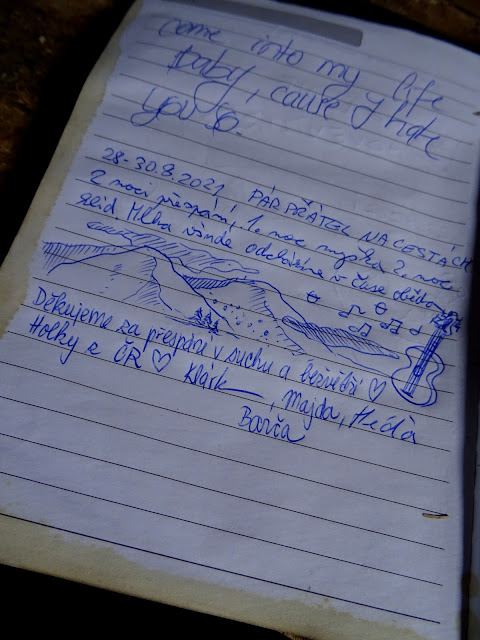 come into my life
baby, cause I hate
you so.
28-30.8.2021 PÁR PŘÁTEL NA CESTÁCH
2 noci přespání, 1. noc myška 2. noc
klid. Mlha všude
Děkujeme za přespání v suchu a bezvětří ♡
Holky z ČR ♡ Klárk, Majda, Heďa
Barča